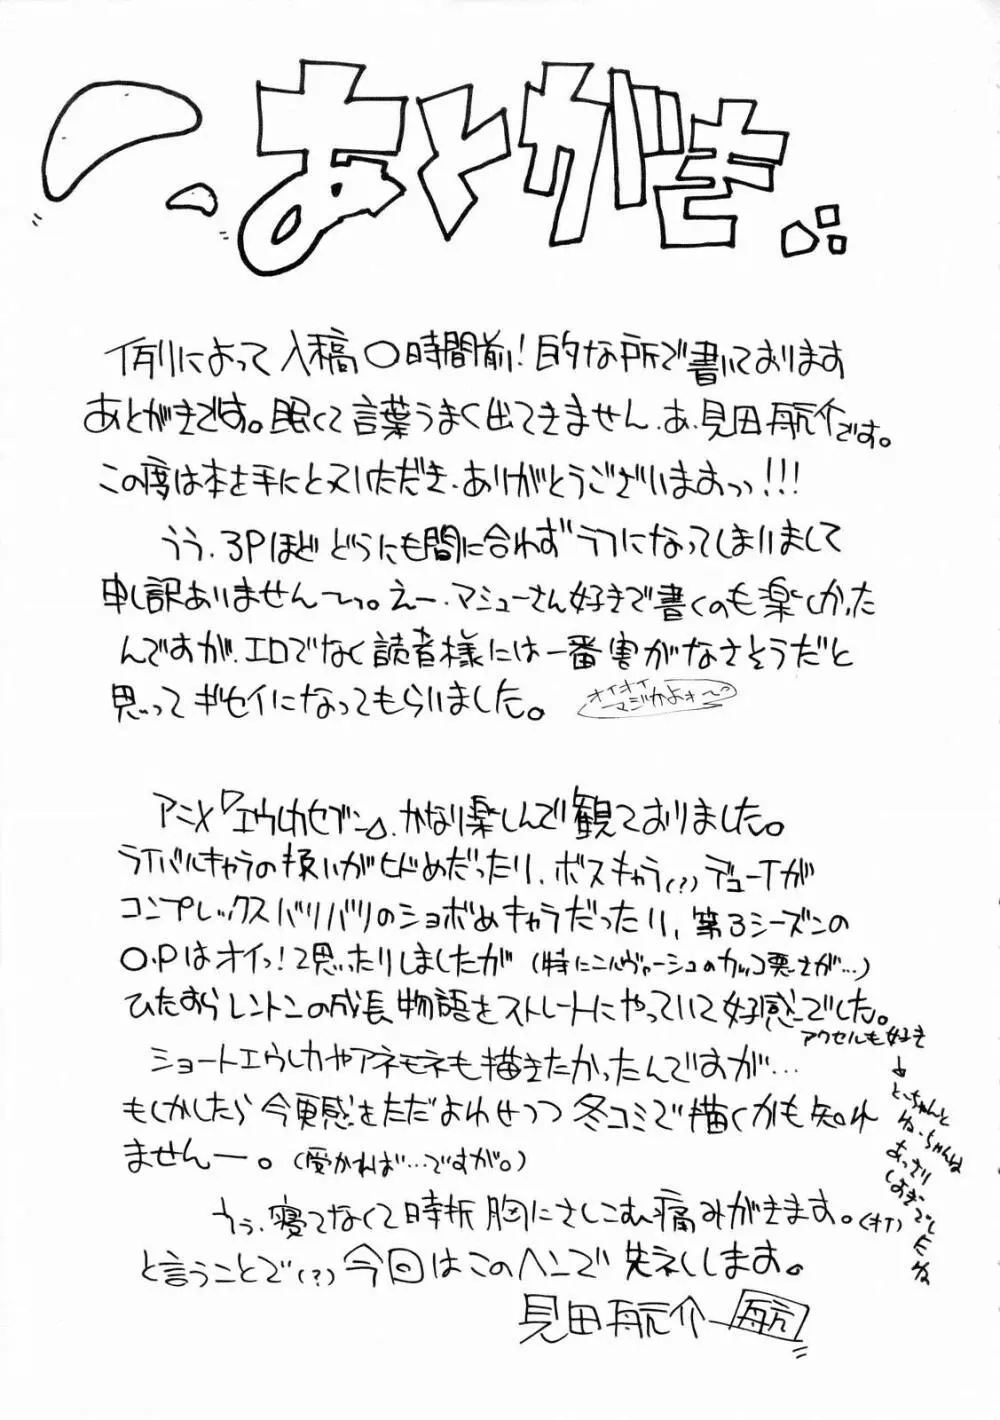 あとがき
例によって入稿○時間前!的な所で書いております
あとがきです。眠くて言葉うまく出てきません、あ、見田航介です。
この度は本を手にとっていただき、ありがとうございまぁっっ!!!
うう、3Pほどどうにも間に合わずラフになってしまいまして
申し訳ありませんーっ。えー、マシューさん好きで書くのも楽しかった
んですが、エロでなく読者様には一番害がなさそうだと
思ってギセイになってもらいました。
オイオイ
マジかよォ〜
アニメ『エウレカセブン』、かなり楽しんで観ておりました。
ライバルキャラの扱いがヒドめだったり、ボスキャラ(?)デューイが
コンプレックスバリバリのショボめキャラだったり、第3シーズンの
O.Pはオイっ!と思ったりしましたが(特にニルヴァーシュのカッコ悪さが…)
ひたすらレントンの成長物語をストレートにやっていて好感でした。
アクセルも好き
↓
とーちゃんと
ねーちゃんは
あっさり
しすぎ
ショートエウレカやアネモネも描きたかったんですが…
もしかしたら今更感をただよわせつつ冬コミで描くかも知れ
ませんー。(受かれば…ですが。)
うぅ、寝てなくて時折胸にさしこむ痛みがきます。(オイ)
と言うことで(?)今回はこのヘンで失礼します。
見田航介
航